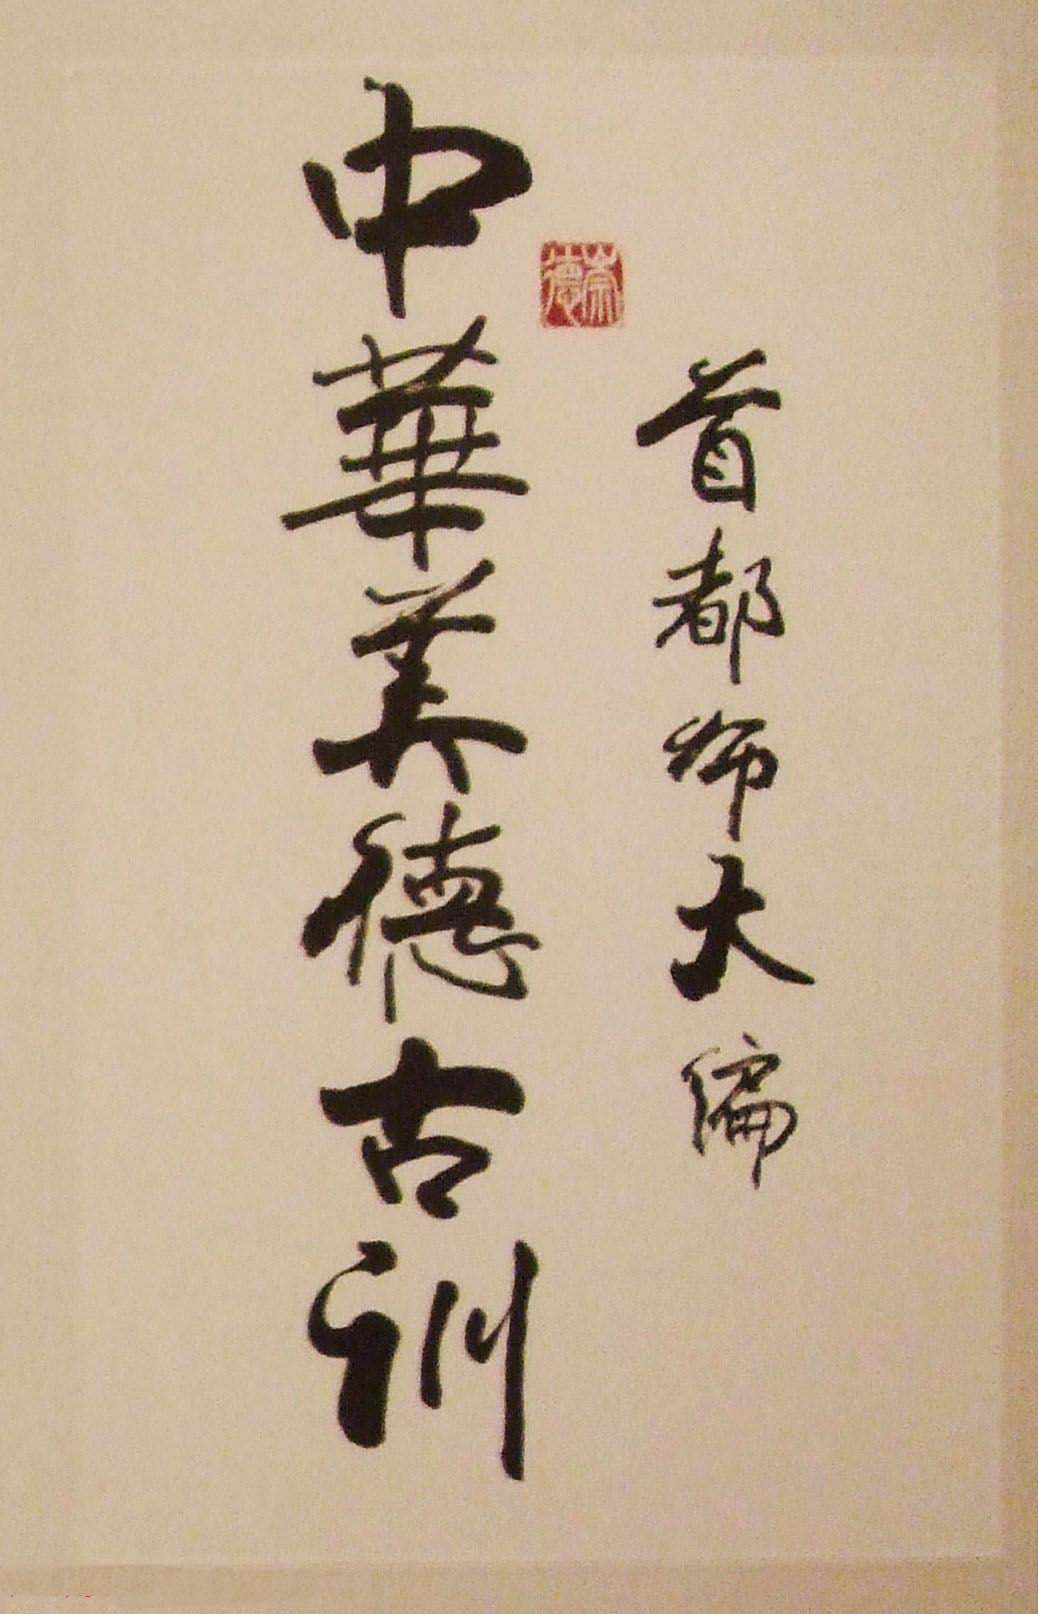 首都师大编
中華美德古训
崇德